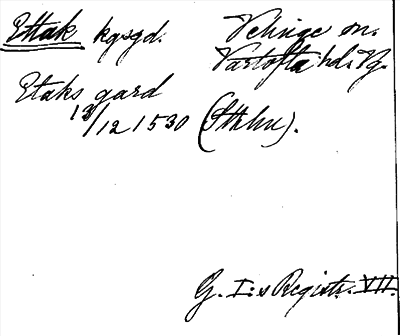 Ettak kgsgd. Velinge sn.
Vartofta hd. Vg.
Etaks gard
13/12 1530 (Sthlm).
G. I:s Registr. VII.